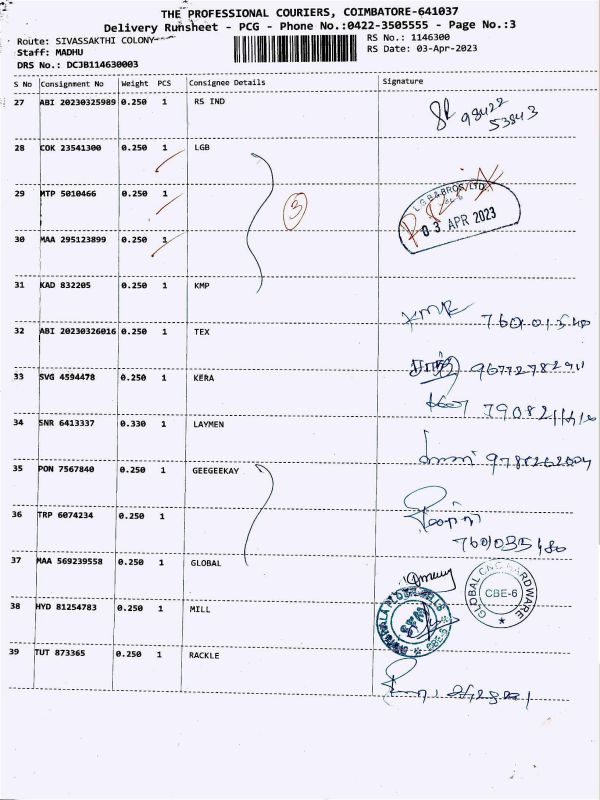 THE PROFESSIONAL COURIERS, COIMBATORE-641037
Delivery Runsheet - PCG - Phone No.:0422-3505555 - Page No.:3
Route: SIVASSAKTHI COLONY
RS No.: 1146300
Staff: MADHU
RS Date: 03-Apr-2023
DRS No.: DCJB114630003
S No Consignment No Weight PCS Consignee Details Signature
27 ABI 20230325989 0.250 1 RS IND
98422
53843
28 COK 23541300 0.250 1 LGB
29 MTP 5010466 0.250 1
3
L.G.B & BROS. LTD.
03 APR 2023
30 MAA 295123899 0.250 1
31 KAD 832205 0.250 1 KMP
32 ABI 20230326016 0.250 1 TEX
33 SVG 4594478 0.250 1 KERA
34 SNR 6413337 0.330 1 LAYMEN
35 PON 7567840 0.250 1 GEEGEEKAY
36 TRP 6074234 0.250 1
37 MAA 569239558 0.250 1 GLOBAL
GLOBAL CNC HARDWARE
CBE-6
38 HYD 81254783 0.250 1 MILL
CBE-6
39 TUT 873365 0.250 1 RACKLE